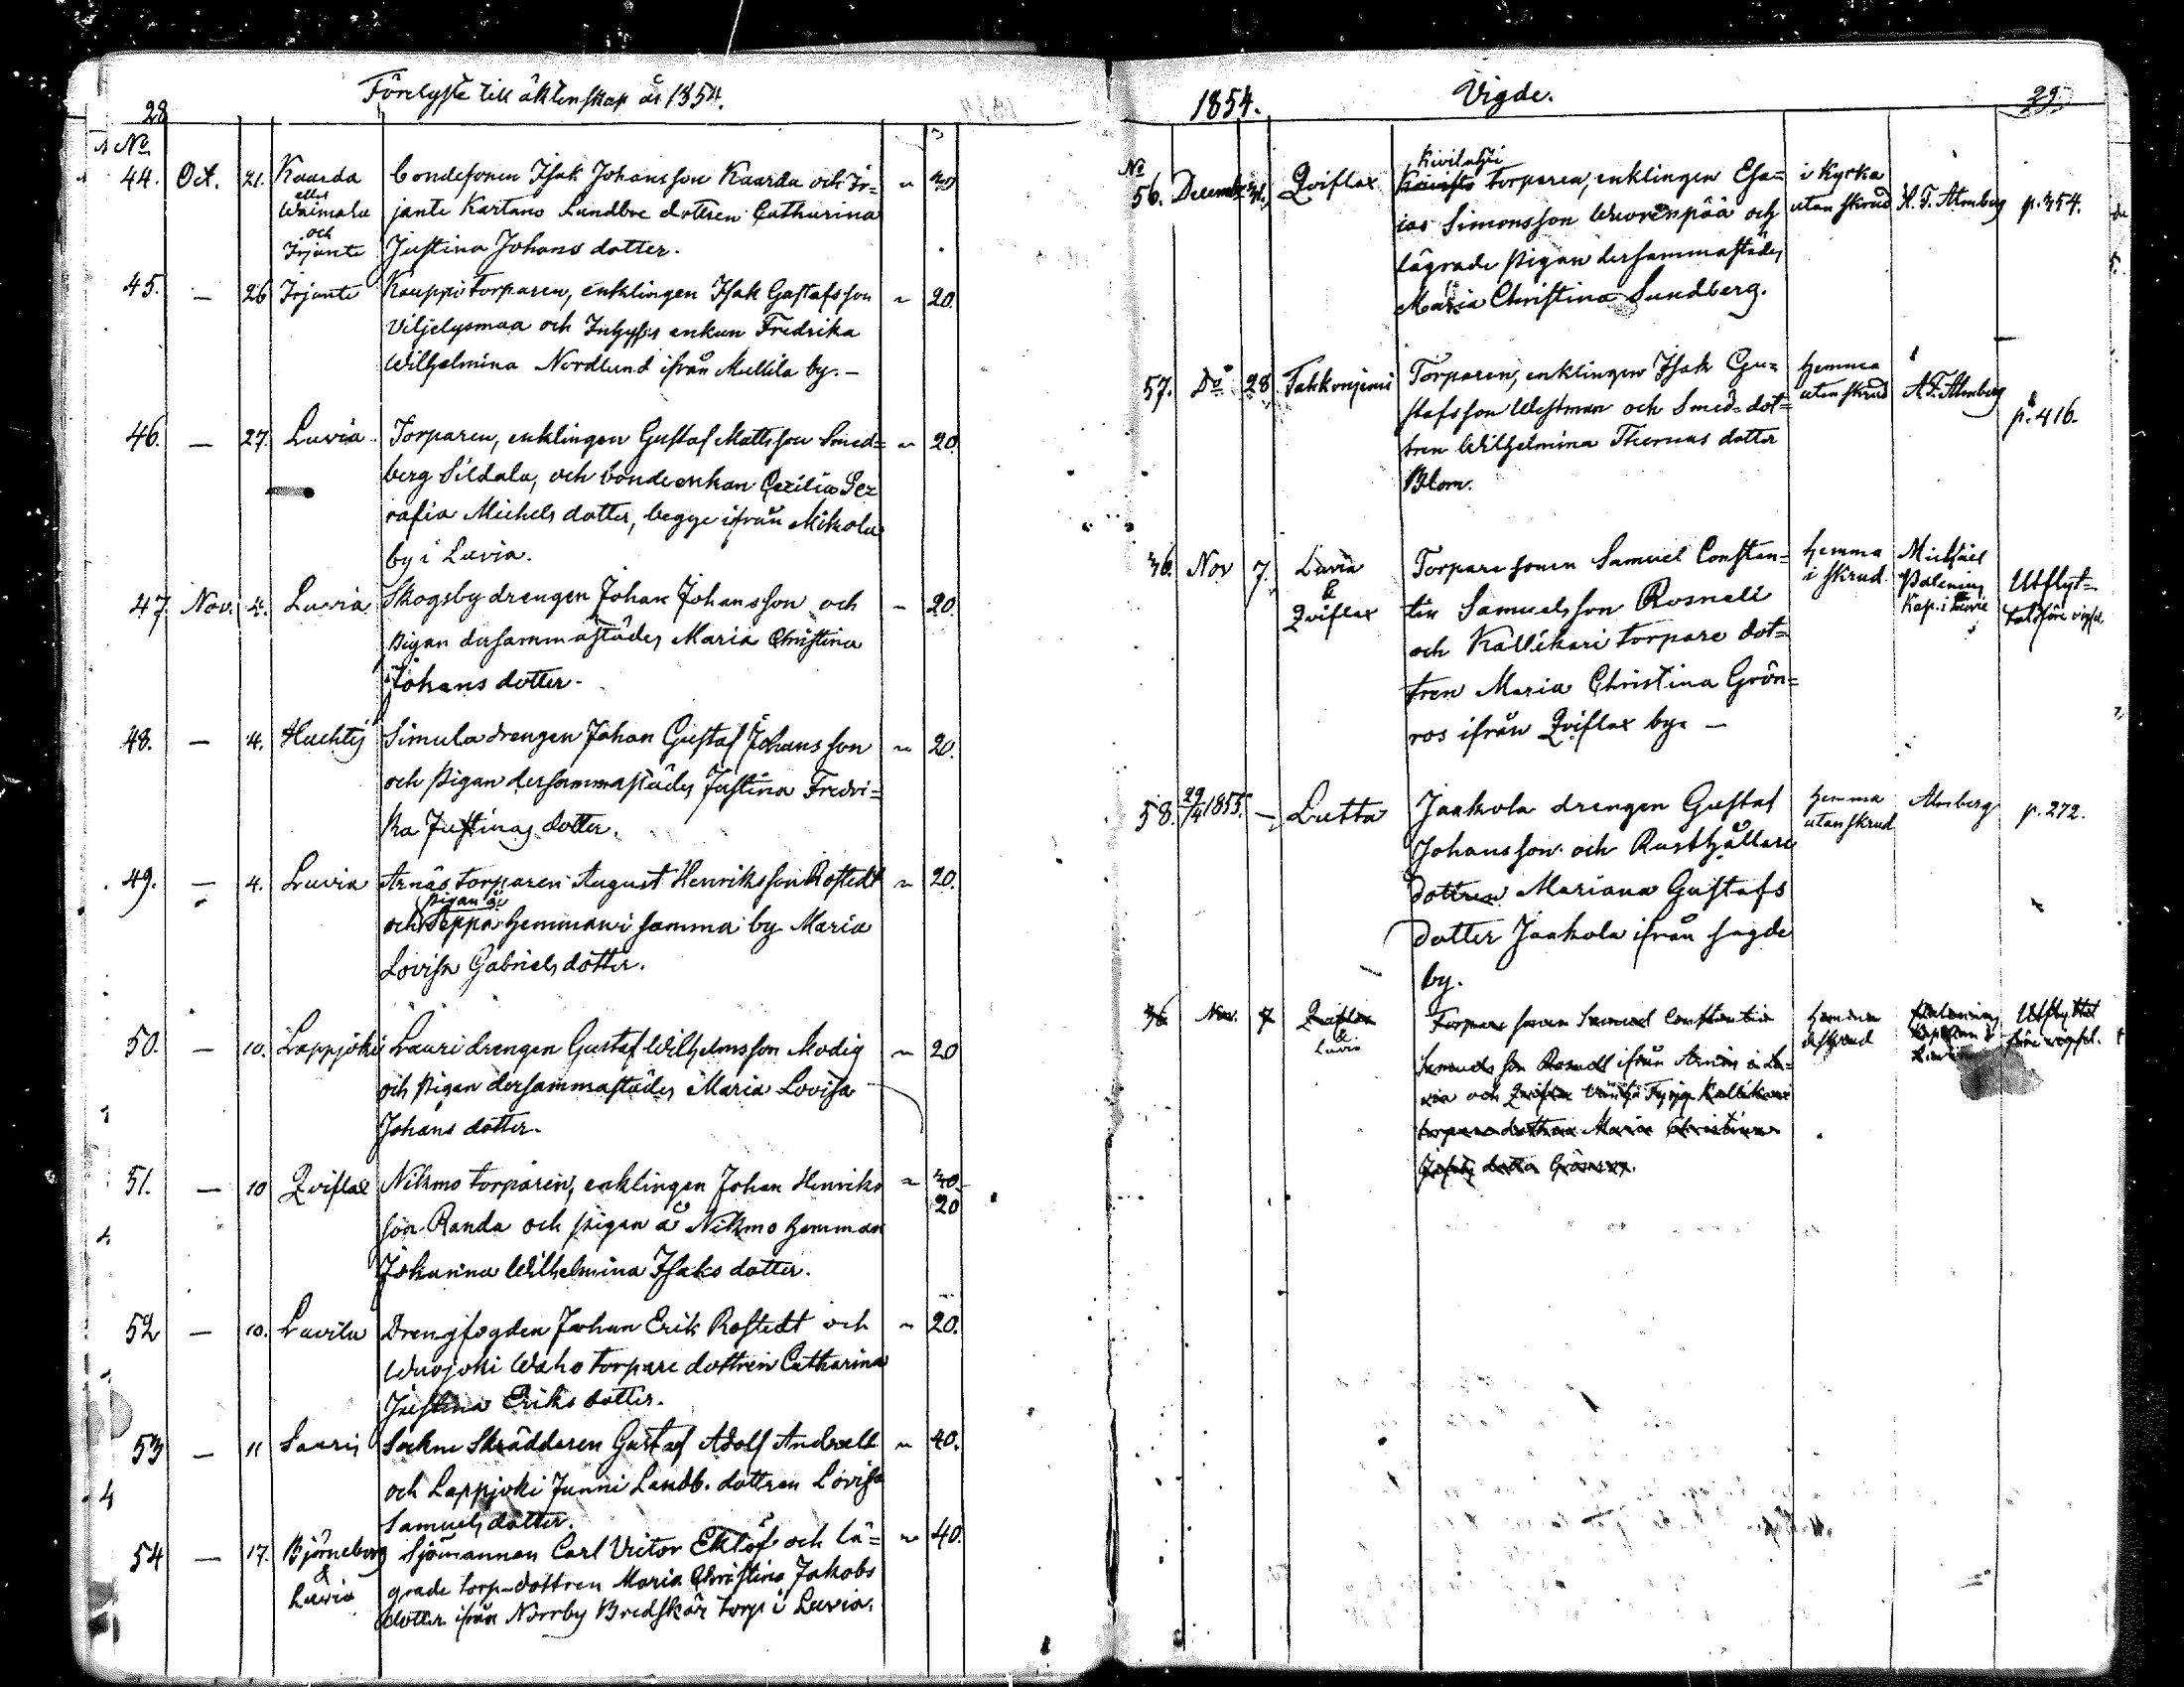 28
Förelyste till äktenskap år 1854.
No
44. Oct. 21. Kaarda eller Waimala och Irjante
bondesonen Isak Johansson Kaarda och Ir=
jante Kartano Landboe dottren Catharina
Justina Johans dotter.
45. — 26 Irjante Kauppi torparen, enklingen Isak Gustafsson ~ 20.
Viljelysmaa och enkan Fredrika
Wilhelmina Nordlund ifrån Mullila by. —
46. — 27. Luvia Torparen, enklingen Gustaf Mattsson Smed= ~ 20.
berg Sildala, och bonde enkan Cecilia Se=
rafia Michels dotter, begge ifrån Mikola
by i Luvia.
47. Nov. 4. Luvia Skogsby drengen Johan Johansson och ~ 20.
pigan dersammastädes Maria Christina
Johans dotter.
48. — 4. Huchtis Simula drengen Johan Gustaf Johansson ~ 20.
och pigan dersammastädes Justina Fredri=
ka Justinas dotter.
49. — 4. Luvia Arnäs torparen August Henriksson Rostedt ~ 20.
pigan å
och Seppä hemman i samma by Maria
Lovisa Gabriels dotter.
50. — 10. Lappjoki Lauri drengen Gustaf Wilhelmsson Modig ~ 20
och pigan dersammastädes Maria Lovisa
Johans dotter.
51. — 10 Qviflax Nikmo torparen, enklingen Johan Henriks ~ 40.
20
son Randa och pigan å Nikmo hemman
Johanna Wilhelmina Isaks dotter.
52 — 10. Luvila Drengfogden Johan Erik Rostedt och ~ 20.
Wuojoki Waho torpare dottren Catharina
Justina Eriks dotter.
53 — 11 Sauris Sockne Skräddaren Gustaf Adolf Andsell ~ 40.
och Lappjoki Junni Landb. dottren Lovisa
Samuels dotter.
54 — 17. Björneborg & Luvia Sjömannen Carl Victor Eklöf och lä= ~ 40.
grade torp-dottren Maria Christina Jakobs
dotter ifrån Norrby Bredskär torp i Luvia.
1854. Vigde. 29.
No
Kivilahti
56. December 31. Qviflax torparen, enklingen Esa= i Kyrka utan skrud A. F. Almberg p. 354.
ias Simonsson Wuorenpää och
lägrade pigan dersammastädes
Maria Christina Sundberg.
57. Do 28 Torparen, enklingen Isak Gu= hemma utan skrud A. F. Almberg p. 416.
stafsson Westman och Smed=dot=
tren Wilhelmina Thomas dotter
Blom.
36. Nov 7. Luvia & Qviflax Torpare sonen Samuel Constan= hemma i skrud Michael Polenius Kap. i Luvia Utflyt=
tin Samuelsson Rosnell
och Kallikari torpare dot=
tren Maria Christina Grön=
ros ifrån Qviflax by. —
58. 29/4 1855. — Lutta Jaakola drengen Gustaf hemma utan skrud Almberg p. 272.
Johansson och Rusthållare
dottren Mariana Gustafs
dotter Jaakola ifrån sagde
by.
36 Nov. 7 Qviflax & Luvia Torpare sonen Samuel Constantin hemma i skrud Utflyttat före vigsel.
Samuelsson Rosnell ifrån Arnäs i Lu=
via och Qviflax Kallikari
torpare dottren Maria Christina
dotter Grönros.